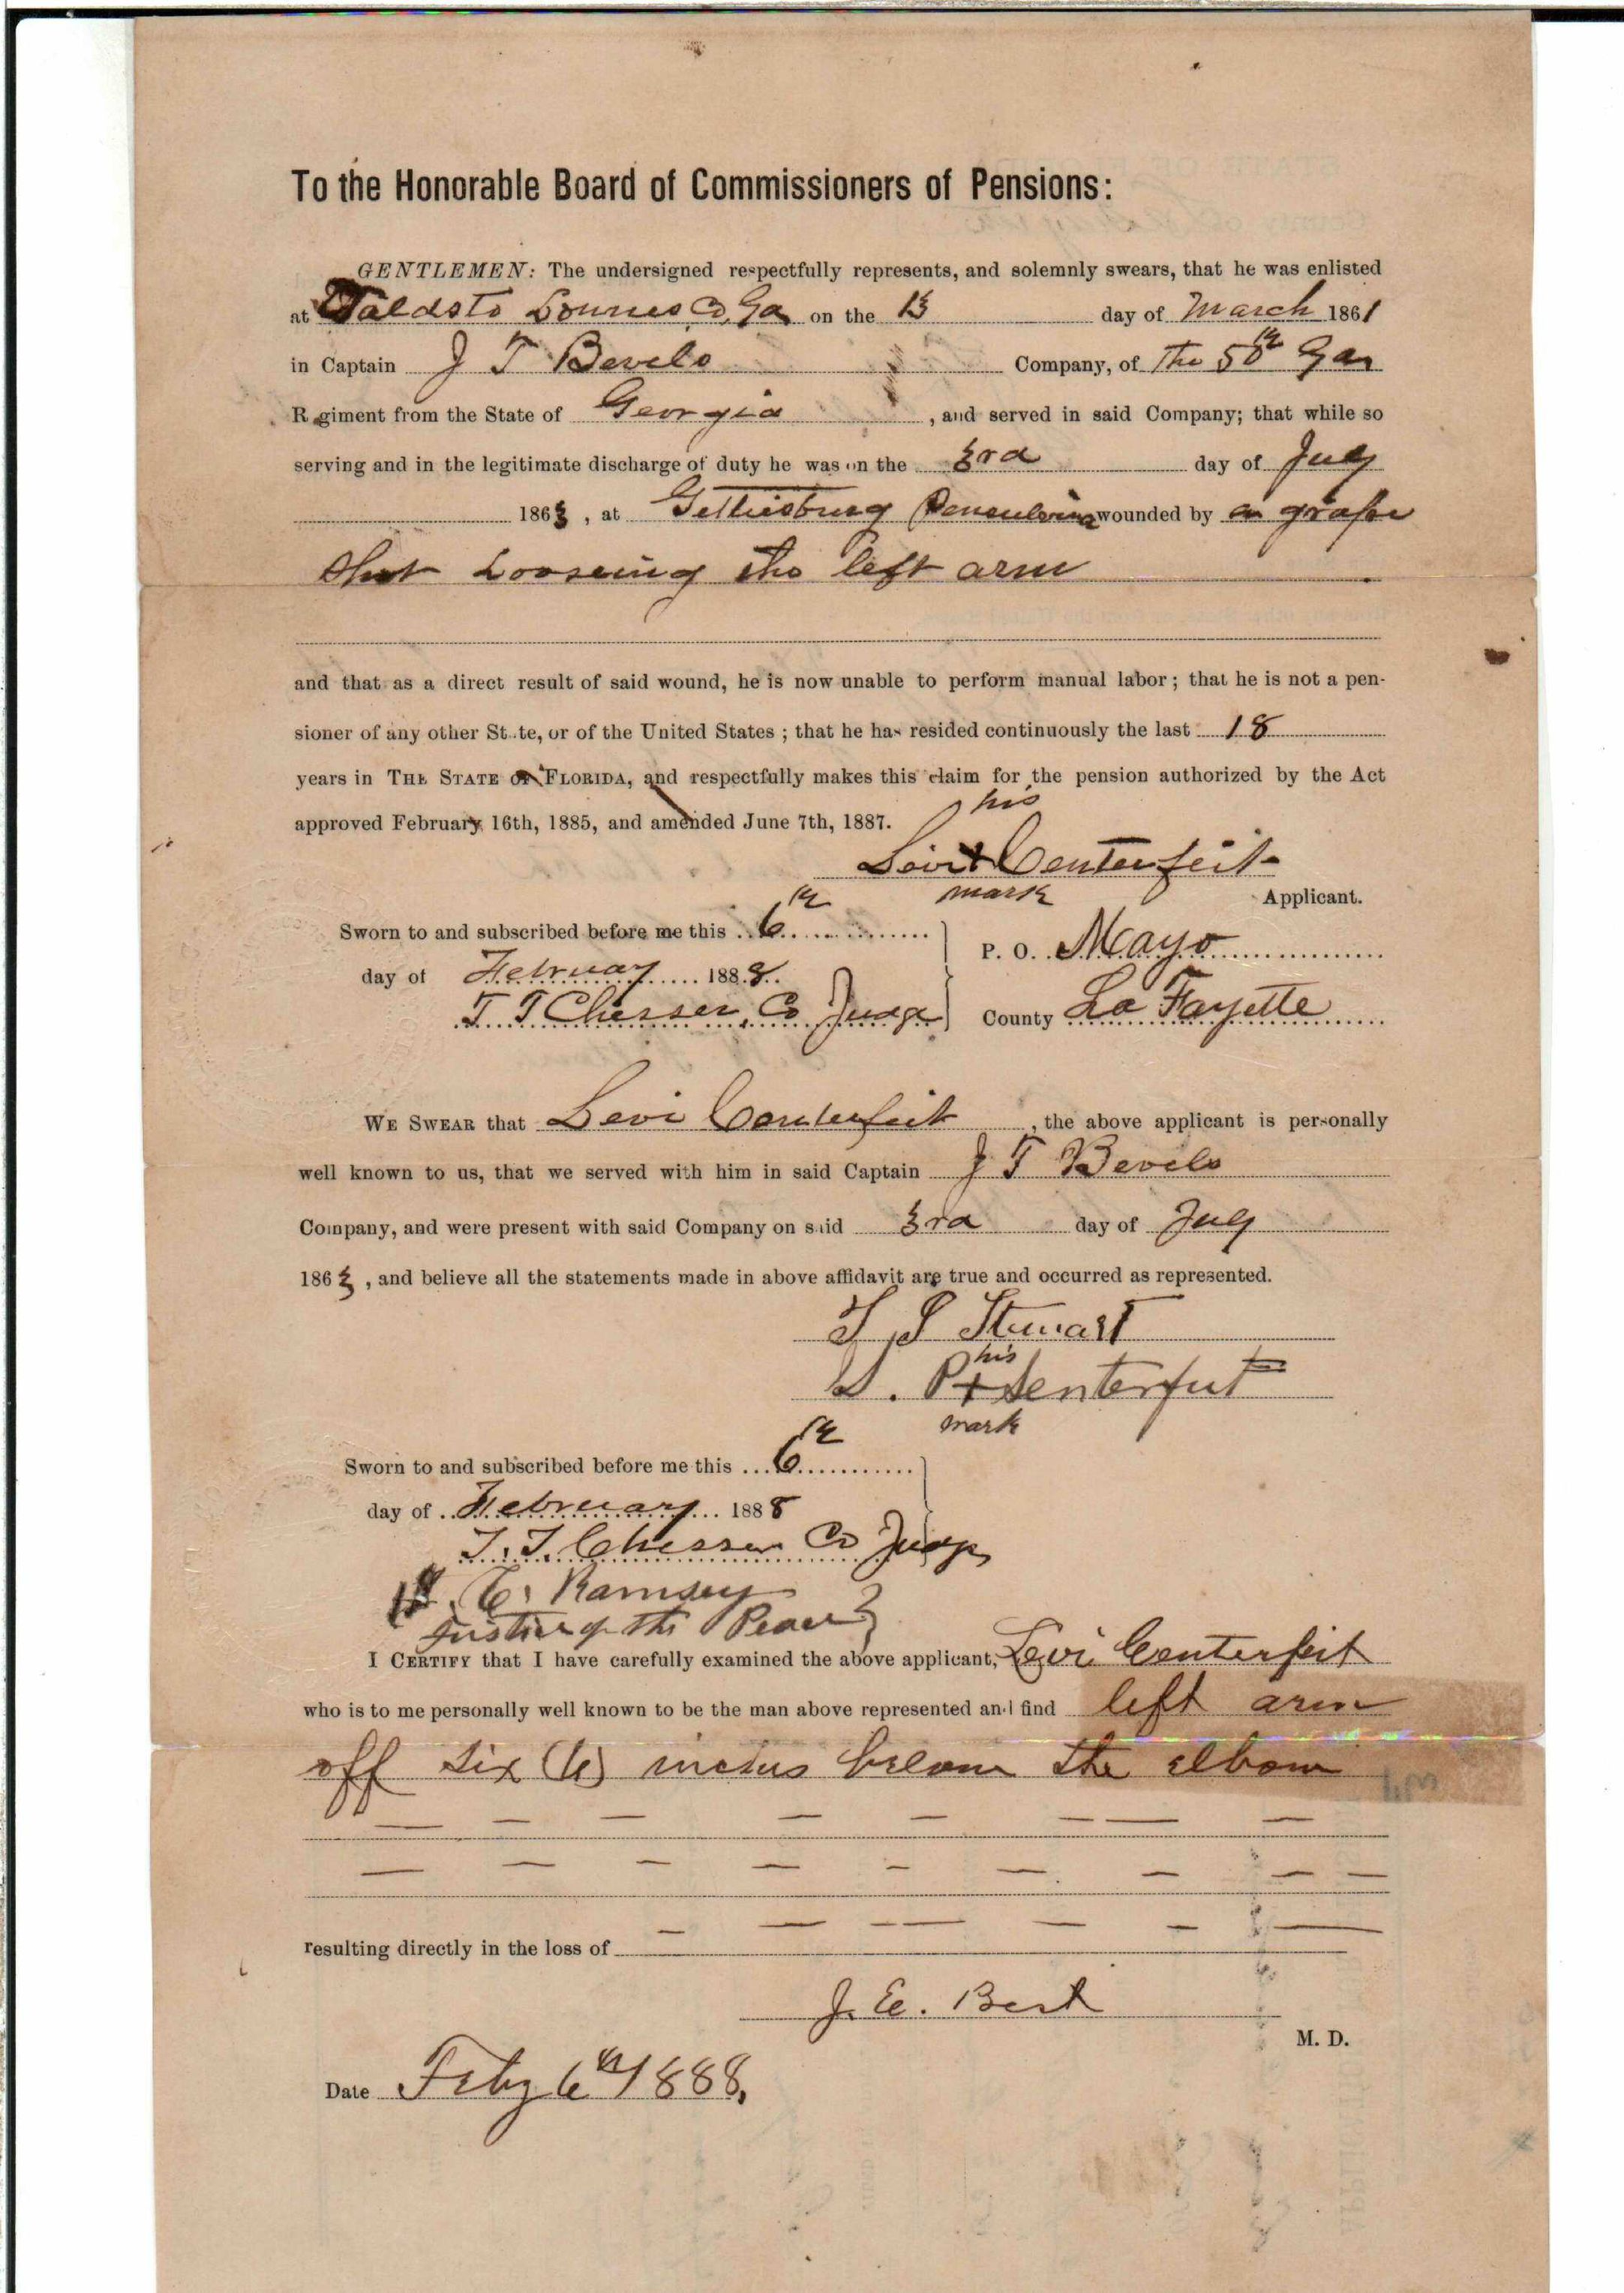 To the Honorable Board of Commissioners of Pensions:
GENTLEMEN: The undersigned respectfully represents, and solemnly swears, that he was enlisted
at Valdsto Lounes Co, Ga on the 13 day of March 1861
in Captain J T Bevels Company, of The 50th Ga
R giment from the State of Georgia, and served in said Company; that while so
serving and in the legitimate discharge of duty he was on the 3rd day of July
1863, at Gettiesburg wounded by a grape
Shot Looseing the left arm
and that as a direct result of said wound, he is now unable to perform manual labor; that he is not a pen-
sioner of any other St te, or of the United States; that he has resided continuously the last 18
years in THE STATE OF FLORIDA, and respectfully makes this claim for the pension authorized by the Act
approved February 16th, 1885, and amended June 7th, 1887.
his
Levi + Centerfeit
mark
Applicant.
Sworn to and subscribed before me this 6th
day of February 1888.
T T Chesser, Co Judge
P. O. Mayo
County La Fayette
WE SWEAR that Levi Centerfeit, the above applicant is personally
well known to us, that we served with him in said Captain J T Bevels
Company, and were present with said Company on said 3rd day of July
1863, and believe all the statements made in above affidavit are true and occurred as represented.
T S Stewart
his
S. P + Senterfut
mark
Sworn to and subscribed before me this 6th
day of February 1888
T. T. Chesser Co Judge
C. Ramsey
Justice of the Peace
I CERTIFY that I have carefully examined the above applicant, Levi Centerfeit
who is to me personally well known to be the man above represented and find left arm
off six (6) inches the elbow
resulting directly in the loss of
J. E. Best
M. D.
Date Feby 6th 1888,